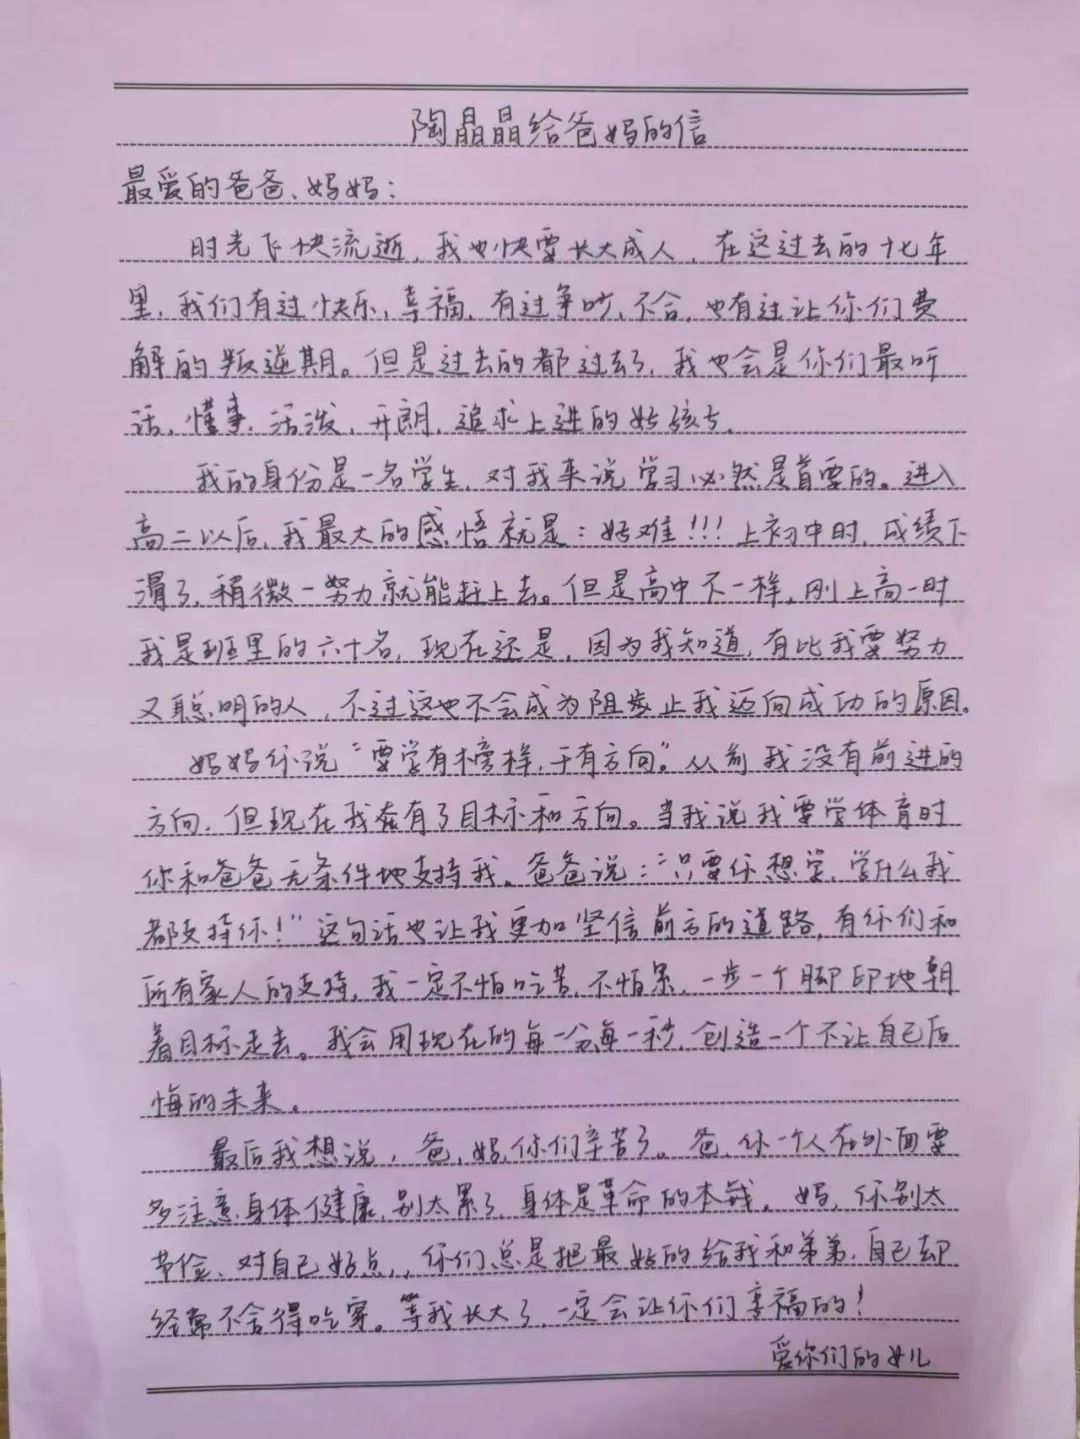 陶晶晶给爸妈的信
最爱的爸爸、妈妈：
时光飞快流逝，我也快要长大成人，在这过去的十七年
里，我们有过快乐，幸福，有过争吵、不合，也有过让你们费
解的叛逆期。但是过去的都过去了，我也会是你们最听
话，懂事，活泼，开朗，追求上进的好孩子。
我的身份是一名学生，对我来说学习必然是首要的。进入
高二以后，我最大的感悟就是：好难！！！上初中时，成绩下
滑了，稍微一努力就能赶上去。但是高中不一样，刚上高一时
我是班里的六十名，现在还是，因为我知道，有比我要努力
又聪明的人，不过这也不会成为阻步止我迈向成功的原因。
妈妈你说“要学有榜样，干有方向。”从前我没有前进的
方向，但现在我在有了目标和方向。当我说我要学体育时
你和爸爸无条件地支持我。爸爸说：“只要你想学，学什么我
都支持你！”这句话也让我更加坚信前方的道路，有你们和
所有家人的支持，我一定不怕吃苦，不怕累，一步一个脚印地朝
着目标走去。我会用现在的每一分每一秒，创造一个不让自己后
悔的未来。
最后我想说，爸，妈，你们辛苦了。爸，你一个人在外面要
多注意身体健康，别太累了，身体是革命的本钱。妈，你别太
节俭，对自己好点，，你们总是把最好的给我和弟弟，自己却
经常不舍得吃穿。等我长大了，一定会让你们享福的！
爱你们的女儿